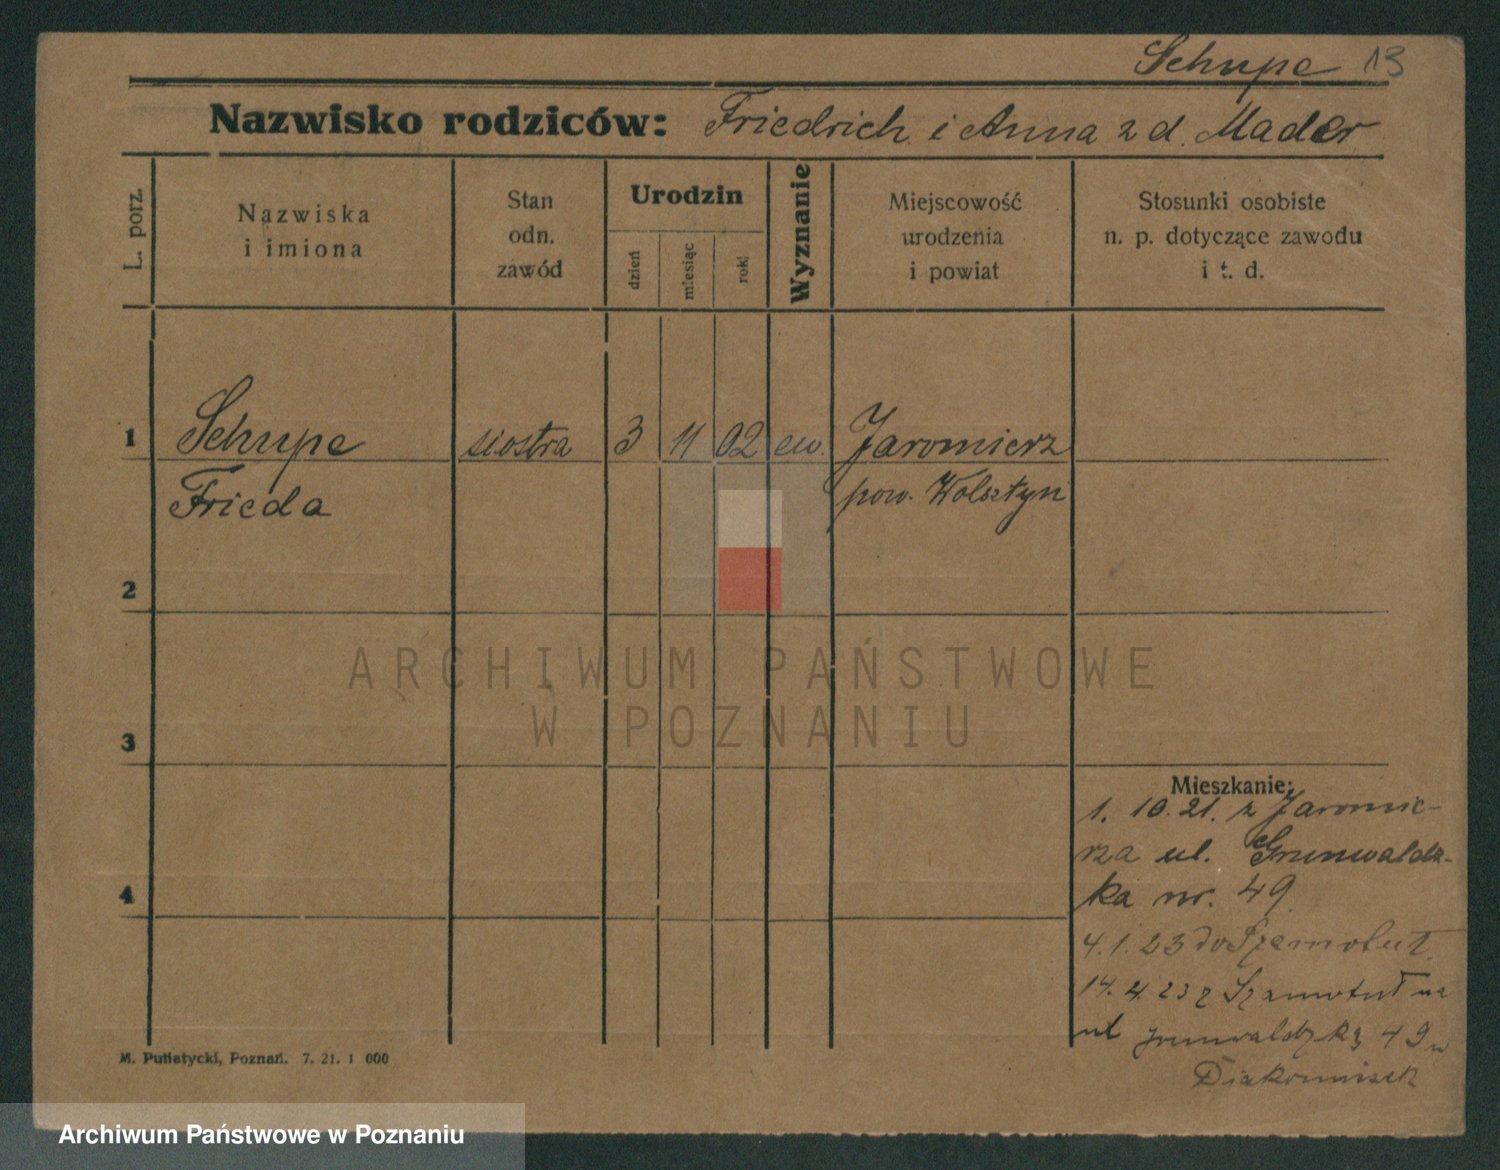 Schupe 13
Nazwisko rodziców: Friedrich i Anna z d. Mader
L. porz.
Nazwiska
i imiona
Stan
odn.
zawód
Urodzin
dzień
miesiąc
rok
Wyznanie
Miejscowość
urodzenia
i powiat
Stosunki osobiste
n. p. dotyczące zawodu
i t. d.
1 Schupe siostra 3 11 02 ew. Jaromierz
Frieda pow. Wolsztyn
2
ARCHIWUM PAŃSTWOWE
W POZNANIU
3
Mieszkanie:
1. 10. 21. z Jaromie-
rza ul. Grunwaldz-
ka nr. 49
4
4. 1. 23 do Szamotuł
14. 4. 23 z Szamotuł na
ul Grunwaldzką 49 u
Diakonisek
M. Putiatycki, Poznań. 7. 21. 1 000
Archiwum Państwowe w Poznaniu